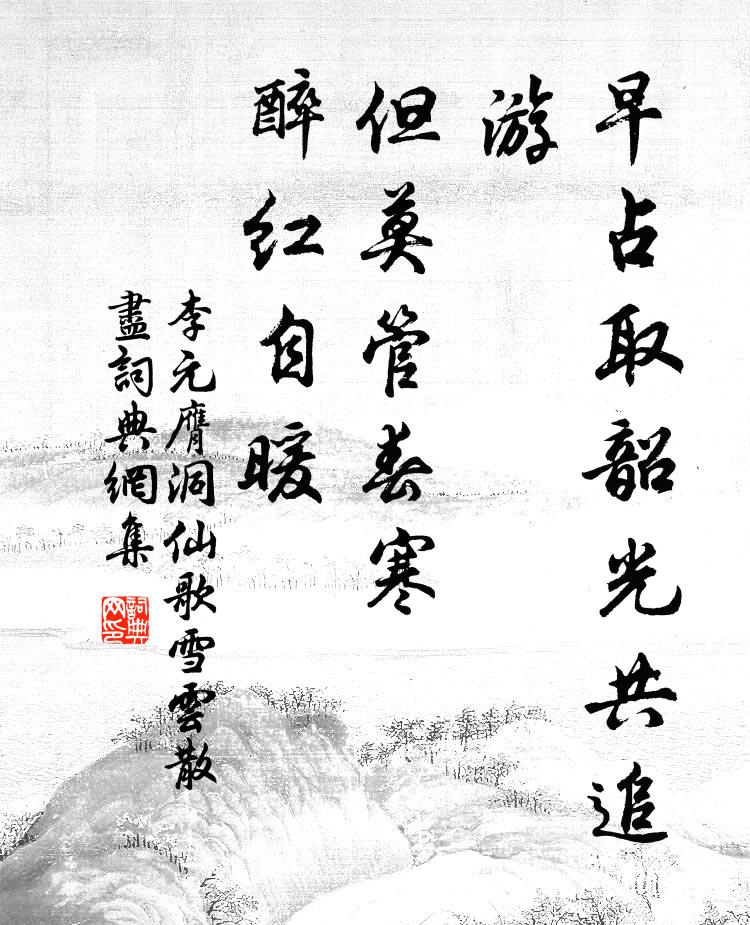 早占取韶光共追
游
但莫管春寒
醉红自暖
李元膺洞仙歌雪雲散
盡詞典網集
詞典
网印